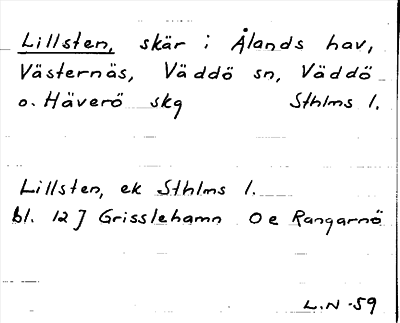 Lillsten, skär i Ålands hav,
Västernäs, Väddö sn, Väddö
o. Häverö skg Sthlms l.
Lillsten, ek Sthlms l.
bl. 12 J Grisslehamn 0 e Rangarnö
L.N -59